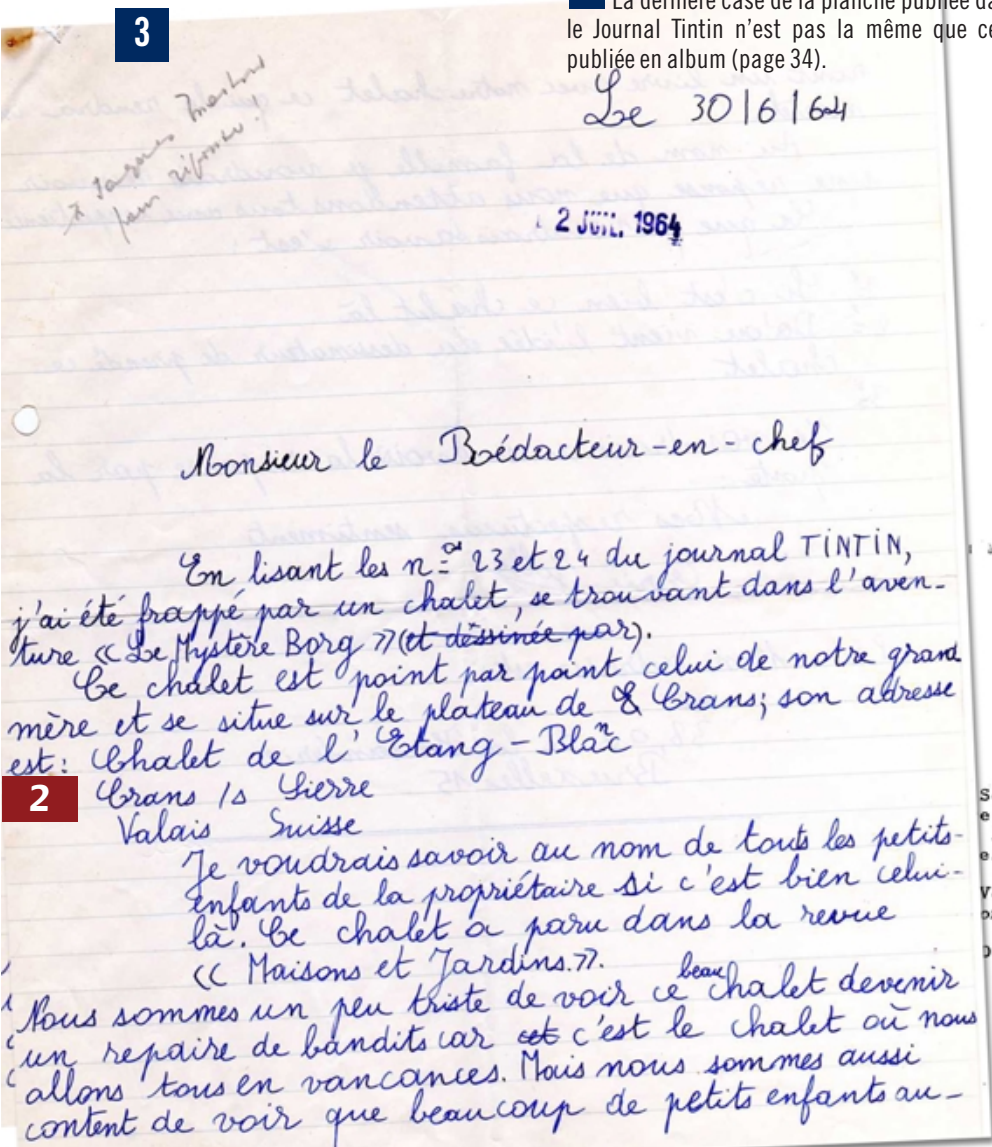 3
La dernière case de la planche publiée da
le Journal Tintin n'est pas la même que ce
publiée en album (page 34).
Le 30/6/64
à Jacques Martin
pour réponse.
2 JUIL. 1964
Monsieur le Rédacteur-en-chef
En lisant les n.os 23 et 24 du journal TINTIN,
j'ai été frappé par un chalet, se trouvant dans l'aven-
ture « Le Mystère Borg » (et déssinée par).
Ce chalet est point par point celui de notre grand
mère et se situe sur le plateau de Crans; son adresse
est: Chalet de l'Etang-Blanc
2
Crans /s Sierre
Valais Suisse
Je voudrais savoir au nom de touts les petits-
enfants de la propriétaire si c'est bien celui-
là. Ce chalet a paru dans la revue
« Maisons et Jardins.».
Nous sommes un peu triste de voir ce beau chalet devenir
un repaire de bandits car c'est le chalet où nous
allons tous en vancances. Mais nous sommes aussi
content de voir que beaucoup de petits enfants au-